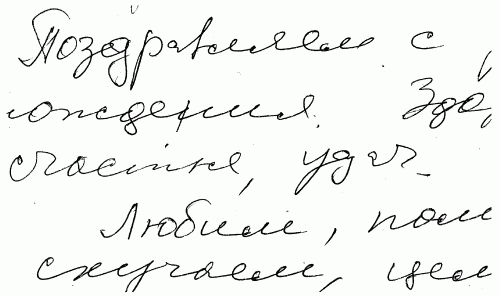 Поздравляем с
рождения. Здо
счастья, удач
Любим, пом
скучаем, цел